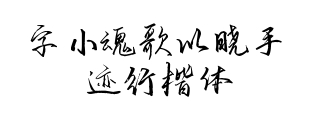 字小魂歌以晓手
迹行楷体